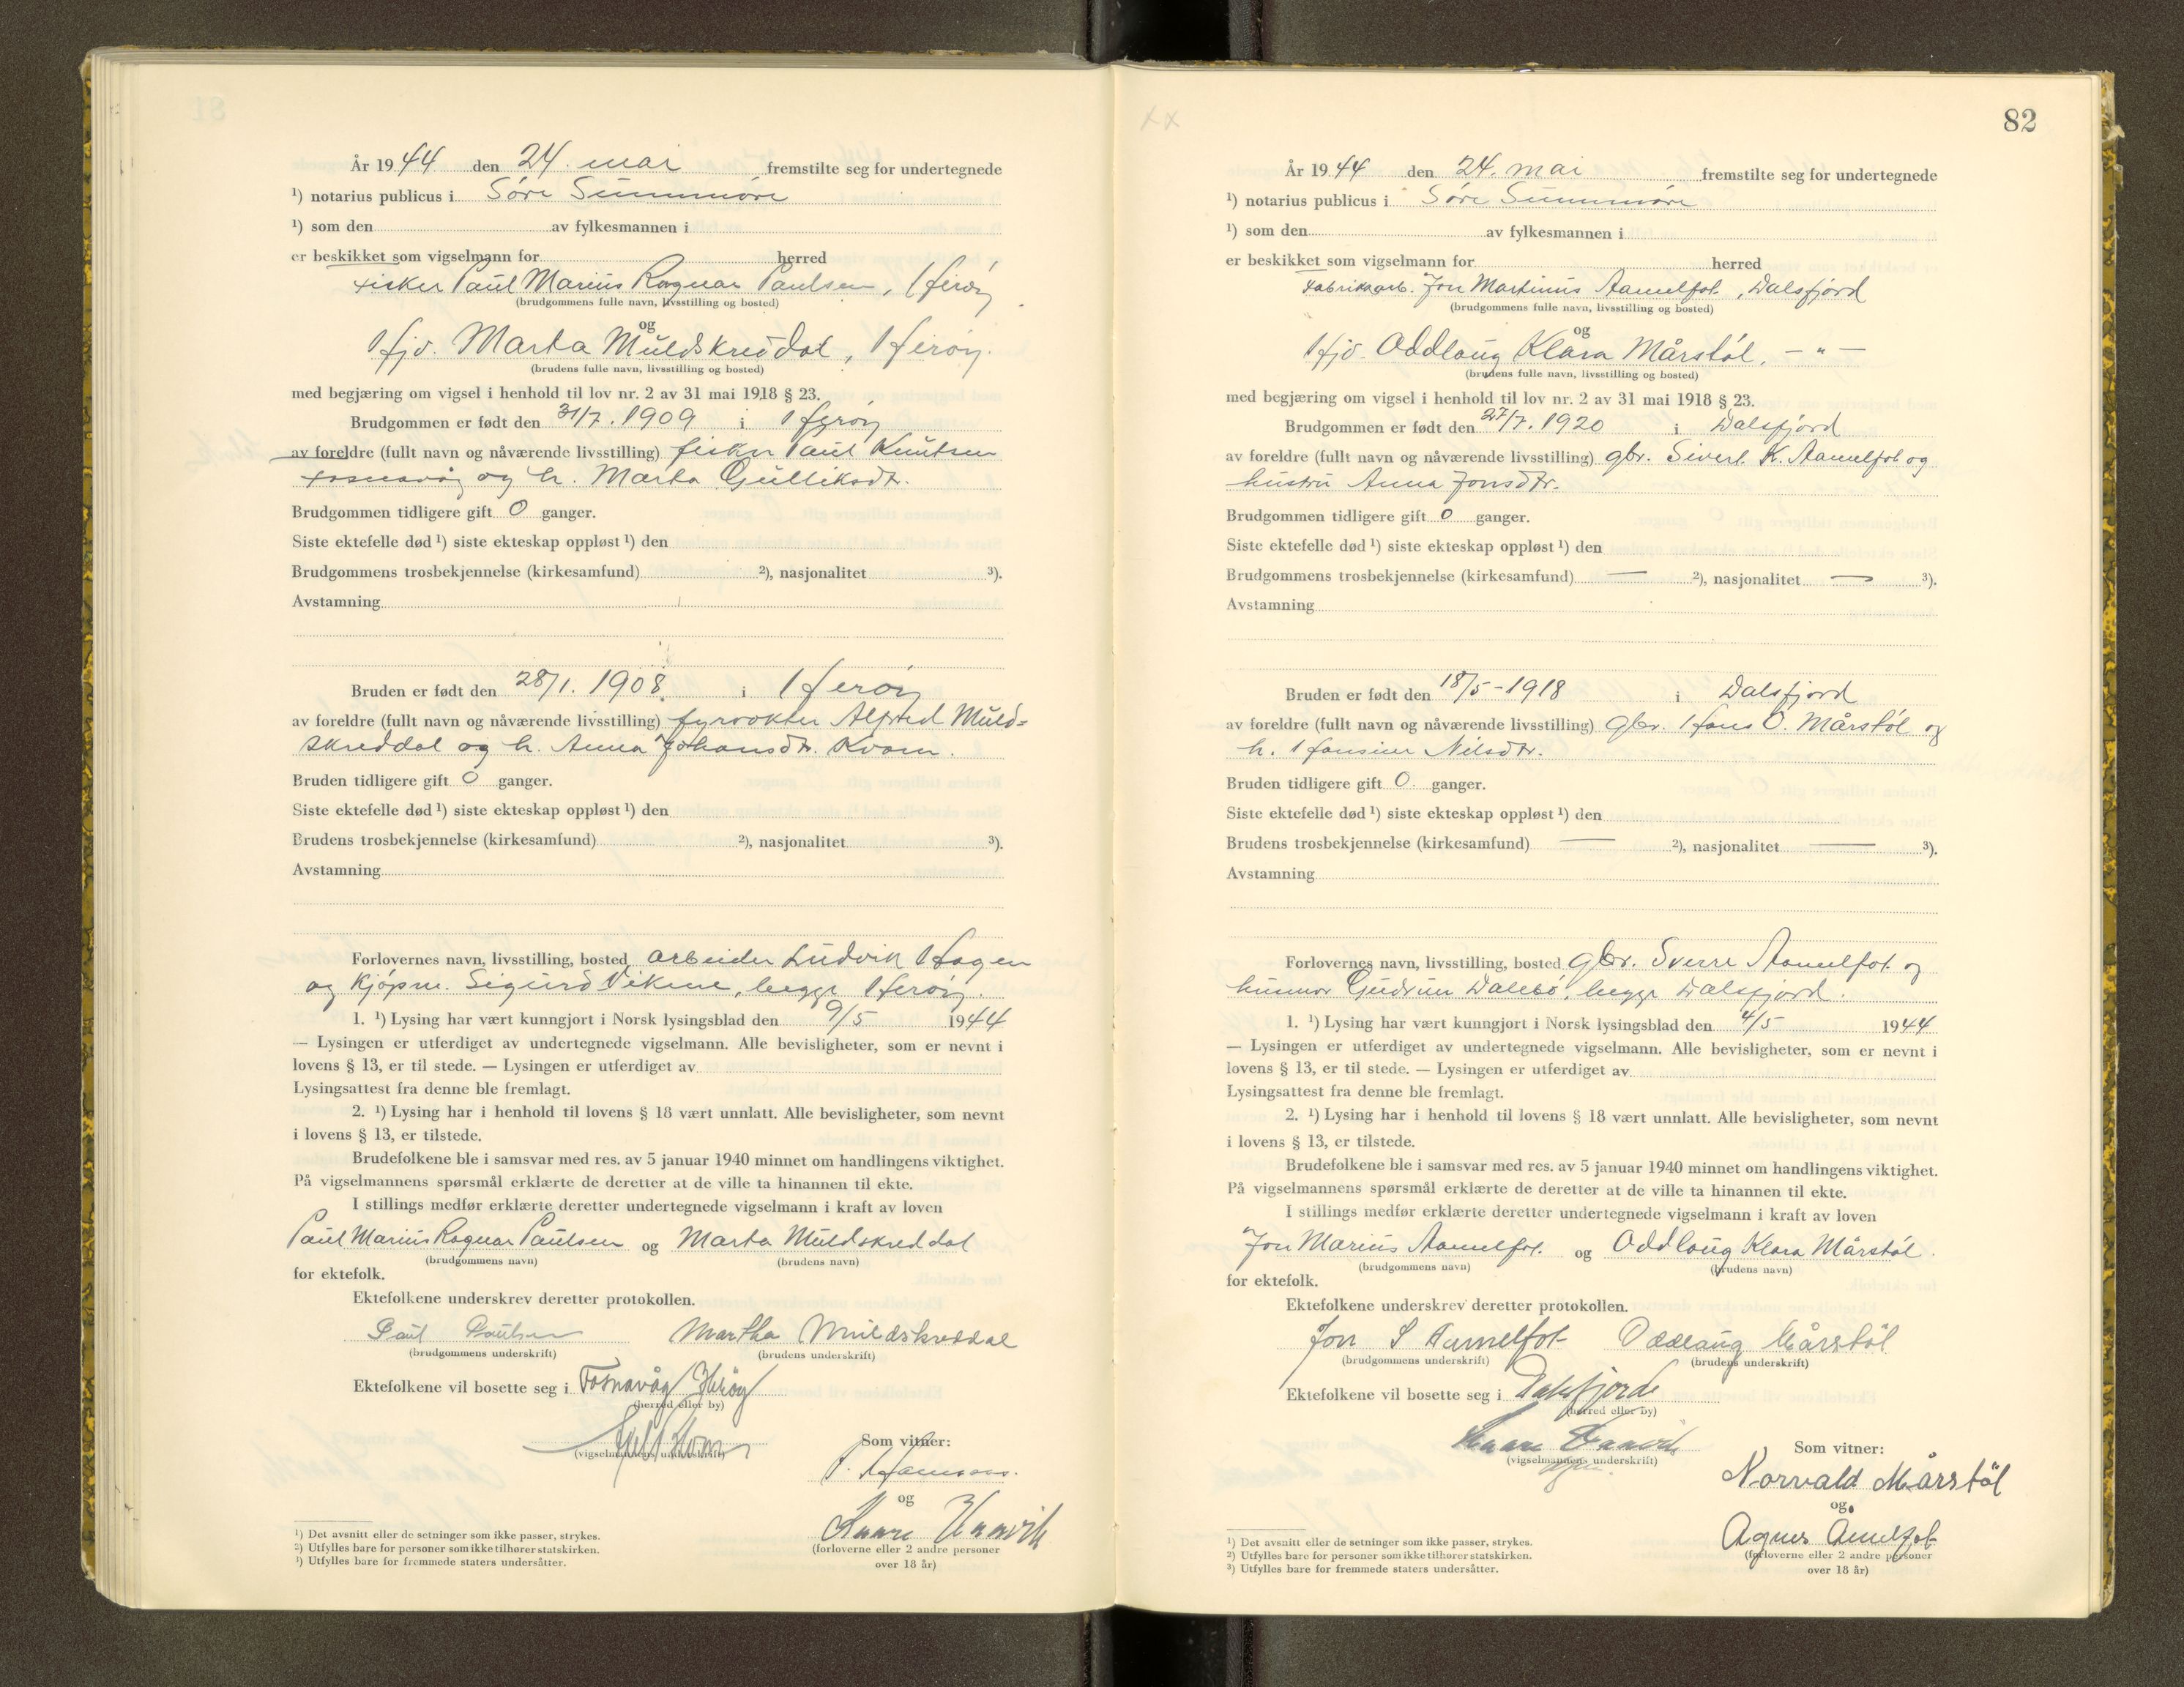 År 1944 den 24. mai fremstilte seg for undertegnede
¹) notarius publicus i Söre Sunnmöre
¹) som den av fylkesmannen i
er beskikket som vigselmann for herred
fisker Paul Marius Ragnar Paulsen, Heröy
(brudgommens fulle navn, livsstilling og bosted)
og
Hjv. Marta Muldskreddal, Heröy.
(brudens fulle navn, livsstilling og bosted)
med begjæring om vigsel i henhold til lov nr. 2 av 31 mai 1918 § 23.
Brudgommen er født den 31/7. 1909 i Heröy
av foreldre (fullt navn og nåværende livsstilling) fisker Paul Knutsen
Fosnavåg og h. Marta Gulliksdtr.
Brudgommen tidligere gift 0 ganger.
Siste ektefelle død ¹) siste ekteskap oppløst ¹) den
Brudgommens trosbekjennelse (kirkesamfund) ²), nasjonalitet ³).
Avstamning
Bruden er født den 28/1. 1908 i Heröy
av foreldre (fullt navn og nåværende livsstilling) fyrvokter Alfred Muld-
skreddal og h. Anna Johansdtr. Kvam.
Bruden tidligere gift 0 ganger.
Siste ektefelle død ¹) siste ekteskap oppløst ¹) den
Brudens trosbekjennelse (kirkesamfund) ²), nasjonalitet ³).
Avstamning
Forlovernes navn, livsstilling, bosted arbeider Ludvik Hagen
og Kjöpm. Sigurd Vikene, begge Heröy.
1. ¹) Lysing har vært kunngjort i Norsk lysingsblad den 9/5 1944
— Lysingen er utferdiget av undertegnede vigselmann. Alle bevisligheter, som er nevnt i
lovens § 13, er til stede. — Lysingen er utferdiget av
Lysingsattest fra denne ble fremlagt.
2. ¹) Lysing har i henhold til lovens § 18 vært unnlatt. Alle bevisligheter, som nevnt
i lovens § 13, er tilstede.
Brudefolkene ble i samsvar med res. av 5 januar 1940 minnet om handlingens viktighet.
På vigselmannens spørsmål erklærte de deretter at de ville ta hinannen til ekte.
I stillings medfør erklærte deretter undertegnede vigselmann i kraft av loven
Paul Marius Ragnar Paulsen og Marta Muldskreddal
(brudgommens navn) (brudens navn)
for ektefolk.
Ektefolkene underskrev deretter protokollen.
Paul Paulsen Martha Muldskreddal
(brudgommens underskrift) (brudens underskrift)
Ektefolkene vil bosette seg i Fosnavåg Herøy
(herred eller by)
(vigselmannens underskrift)
Som vitner:
og
Kaare
(forloverne eller 2 andre personer
over 18 år)
¹) Det avsnitt eller de setninger som ikke passer, strykes.
²) Utfylles bare for personer som ikke tilhører statskirken.
³) Utfylles bare for fremmede staters undersåtter.
82
År 1944 den 24. mai fremstilte seg for undertegnede
¹) notarius publicus i Söre Sunnmöre
¹) som den av fylkesmannen i
er beskikket som vigselmann for herred
Fabrikkarb. Jon Martinus Aamelfot, Dalsfjord
(brudgommens fulle navn, livsstilling og bosted)
og
Hjv. Oddlaug Klara Mårstöl, — " —
(brudens fulle navn, livsstilling og bosted)
med begjæring om vigsel i henhold til lov nr. 2 av 31 mai 1918 § 23.
Brudgommen er født den 27/7. 1920 i Dalsfjord
av foreldre (fullt navn og nåværende livsstilling) gbr. Sivert K. Aamelfot og
hustru Anna Jonsdtr.
Brudgommen tidligere gift 0 ganger.
Siste ektefelle død ¹) siste ekteskap oppløst ¹) den
Brudgommens trosbekjennelse (kirkesamfund) — ²), nasjonalitet — ³).
Avstamning
Bruden er født den 18/5 - 1918 i Dalsfjord
av foreldre (fullt navn og nåværende livsstilling) gbr. Hans O. Mårstöl og
h. Hansine Nilsdtr.
Bruden tidligere gift 0. ganger.
Siste ektefelle død ¹) siste ekteskap oppløst ¹) den
Brudens trosbekjennelse (kirkesamfund) — ²), nasjonalitet — ³).
Avstamning
Forlovernes navn, livsstilling, bosted gbr. Sverre Aamelfot og
husmor Gudrun Dalebö, begge Dalsfjord.
1. ¹) Lysing har vært kunngjort i Norsk lysingsblad den 4/5 1944
— Lysingen er utferdiget av undertegnede vigselmann. Alle bevisligheter, som er nevnt i
lovens § 13, er til stede. — Lysingen er utferdiget av
Lysingsattest fra denne ble fremlagt.
2. ¹) Lysing har i henhold til lovens § 18 vært unnlatt. Alle bevisligheter, som nevnt
i lovens § 13, er tilstede.
Brudefolkene ble i samsvar med res. av 5 januar 1940 minnet om handlingens viktighet.
På vigselmannens spørsmål erklærte de deretter at de ville ta hinannen til ekte.
I stillings medfør erklærte deretter undertegnede vigselmann i kraft av loven
Jon Marius Aamelfot og Oddlaug Klara Mårstöl.
(brudgommens navn) (brudens navn)
for ektefolk.
Ektefolkene underskrev deretter protokollen.
Jon S Aamelfot Oddlaug Mårstöl
(brudgommens underskrift) (brudens underskrift)
Ektefolkene vil bosette seg i Dalsfjord
(herred eller by)
Kaare
(vigselmannens underskrift)
Som vitner:
Norvald Mårstöl
og
Agnes Åmelfot
(forloverne eller 2 andre personer
over 18 år)
¹) Det avsnitt eller de setninger som ikke passer, strykes.
²) Utfylles bare for personer som ikke tilhører statskirken.
³) Utfylles bare for fremmede staters undersåtter.